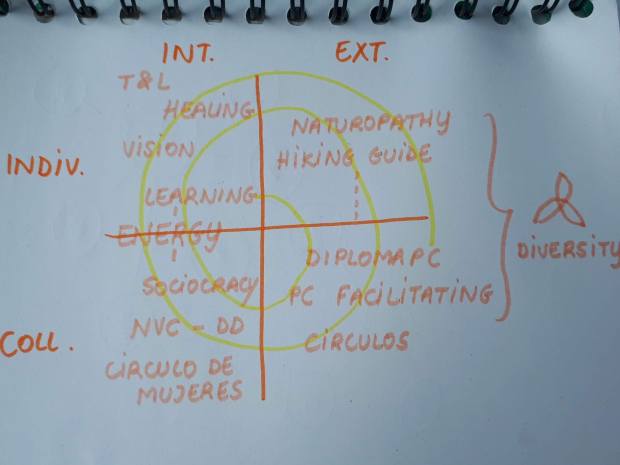 INT.
EXT.
T&L
HEALING
VISION
LEARNING
INDIV.
NATUROPATHY
HIKING GUIDE
ENERGY
SOCIOCRACY
NVC - DD
CÍRCULO DE
MUJERES
COLL.
DIPLOMA PC
PC FACILITATING
CÍRCULOS
DIVERSITY